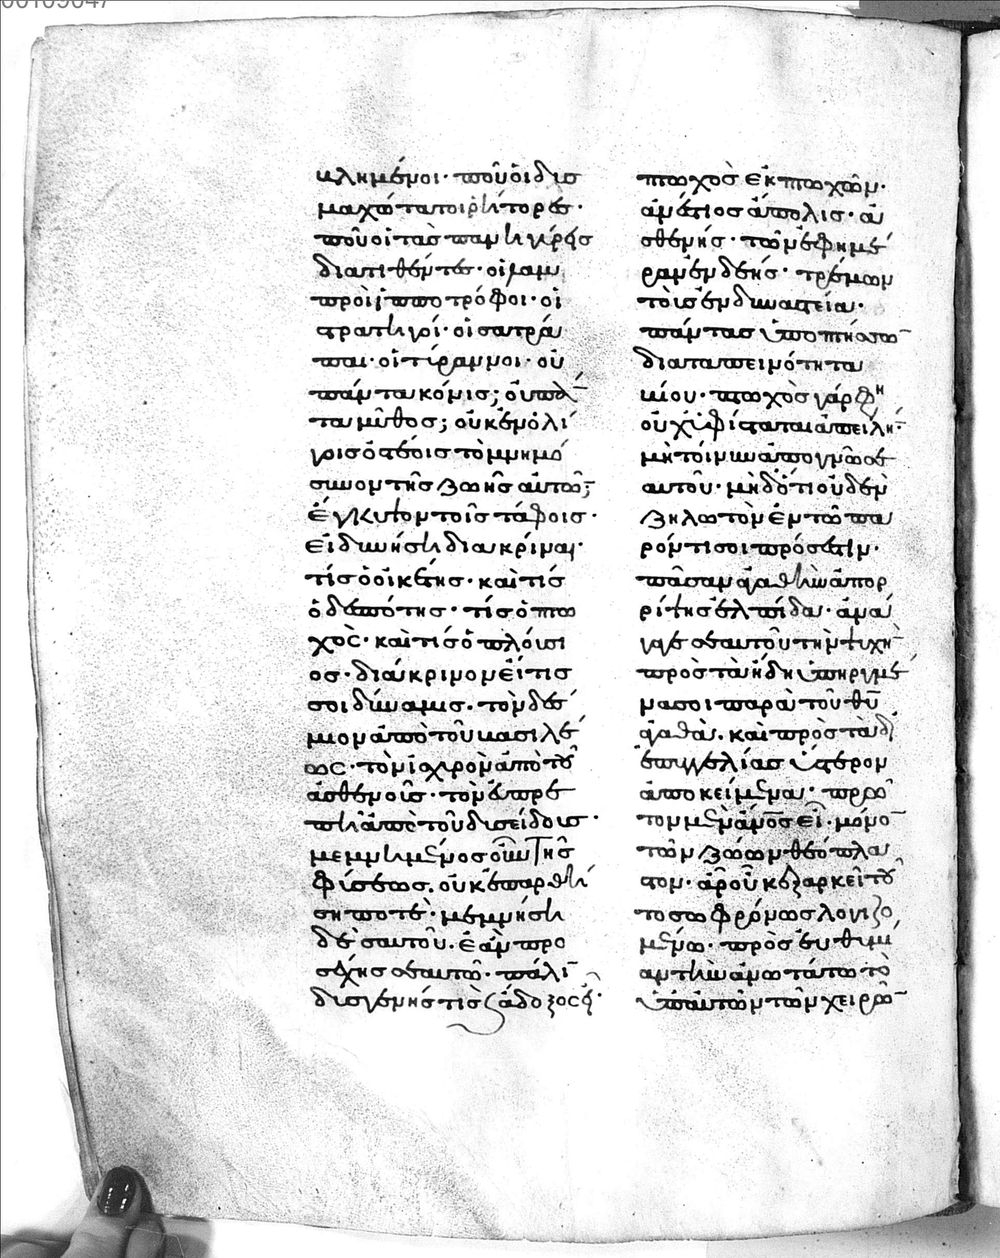 βλημένοι· ποῦ οἱ δυσ
μαχώτατοι ῥήτορες·
ποῦ οἱ τὰς πανηγύρεις
διατιθέντες· οἱ λαμ
προὶ ἱπποτρόφοι· οἱ
στρατηγοί· οἱ σατρά
παι· οἱ τύραννοι· οὐ
πάντα κόνις; οὐ πάν
τα μῦθος; οὐκ ἐν ὀλί
γοις ὀστέοις τὸ μνημό
συνον τῆς ζωῆς αὐτῶν;
ἔγκυψον τοῖς τάφοις·
εἰ δυνήσῃ διακρῖναι·
τίς ὁ οἰκέτης· καὶ τίς
ὁ δεσπότης· τίς ὁ πτω
χός· καὶ τίς ὁ πλούσι
ος· διάκρινον εἴ τίς
σοι δύναμις· τὸν δέσ
μιον ἀπὸ τοῦ βασιλέ
ως· τὸν ἰσχυρὸν ἀπὸ τοῦ
ἀσθενοῦς· τὸν εὐπρε
πῆ ἀπὸ τοῦ δυσειδοῦς·
μεμνημένος οὖν τῆς
φύσεως· οὐκ ἐπαρθή
σῃ ποτέ· μεμνήσῃ
δὲ σαυτοῦ· ἐὰν προ
σέχῃς σεαυτῷ· πάλιν
δυσγενής τις καὶ ἄδοξος εἶ·
πτωχὸς ἐκ πτωχῶν·
ἀνέστιος ἄπολις· ἀ
σθενής· τῶν ἐφημέ
ρων ἐνδεής· τρέμων
τοὺς ἐν δυναστείᾳ·
πάντας ὑποπτήσσων
διὰ ταπεινότητα
βίου· πτωχὸς γάρ φη
οὐχ ὑφίσταται ἀπειλήν·
μὴ τοίνυν ἀπογνῷς σε
αυτοῦ· μηδ' ὅτι οὐδὲν
ζηλωτὸν ἐν τῷ πα
ρόντι σοι πρόσεστιν·
πᾶσαν ἀγαθὴν ἀπορ
ρίψῃς ἐλπίδα· ἀνά
γαγε σεαυτοῦ τὴν ψυχὴν
πρὸς τὰ ἤδη ὑπηργμέ
να σοι παρὰ τοῦ θῦ
ἀγαθά· καὶ πρὸς τὰ δι'
ἐπαγγελίας ὕστερον
ἀποκείμενα· πρῶ
τον μὲν ἄνος εἶ· μόνον
τῶν ζώων θεόπλα
στον· ἆρ' οὐκ ἐξαρκεῖ τοῦ
το σωφρόνως λογιζο
μένῳ· πρὸς εὐθυμί
αν τὴν ἀνωτάτω τὸ
ὑπ' αὐτῶν τῶν χειρῶν